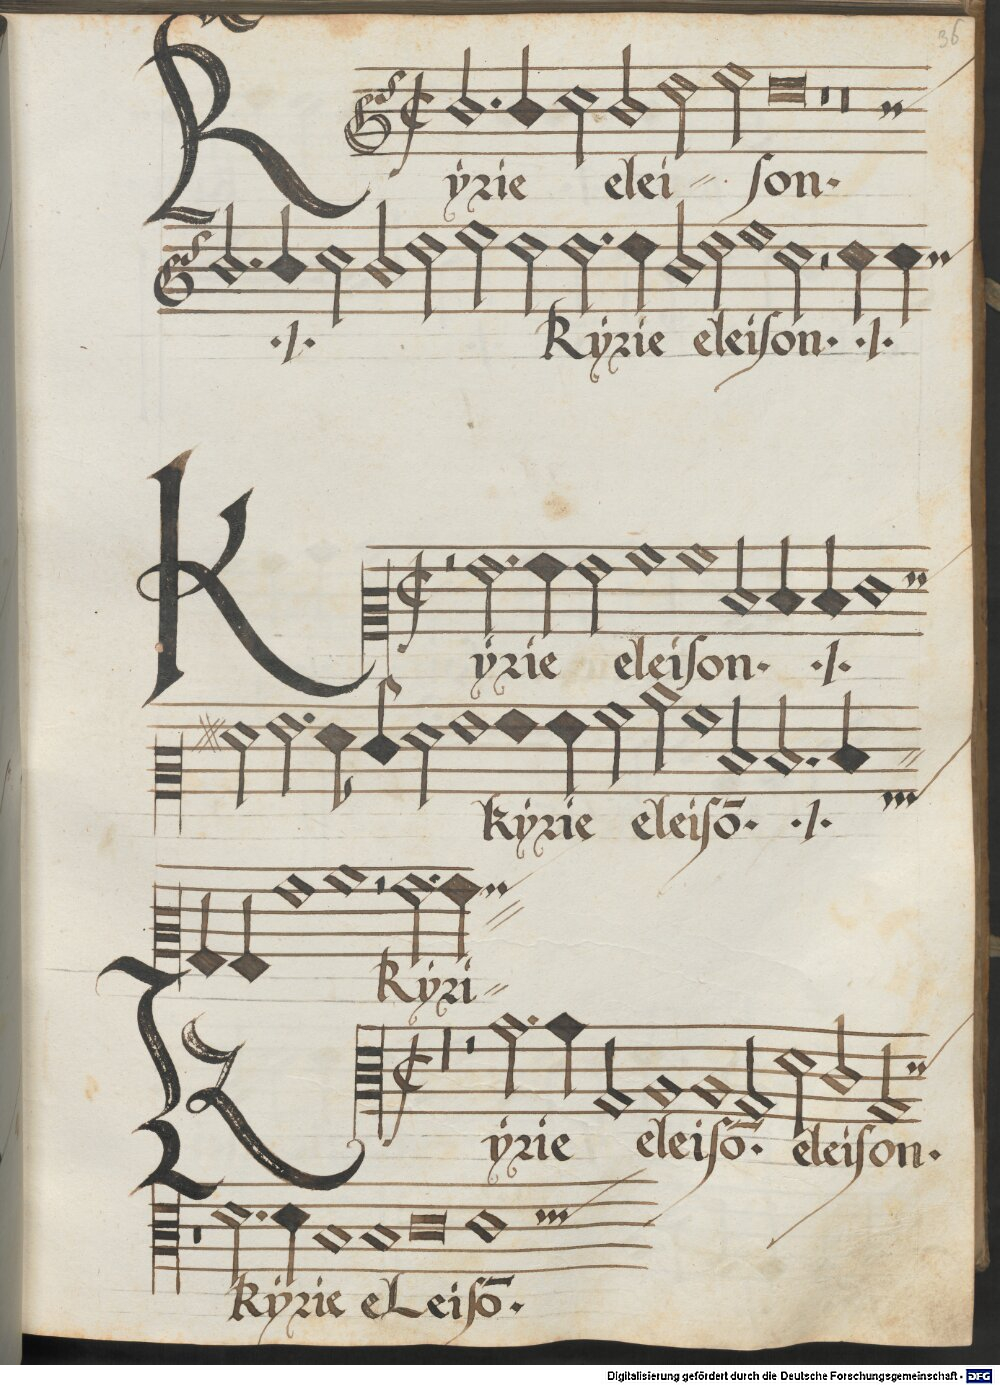 36
Kÿrie elei⸗ ſon·
·/· Kÿrie eleiſon· ·/·
Kÿrie eleiſon· ·/·
kÿrie eleiſō· ·/·
Kÿri⸗
Kÿrie eleiſō· eleiſon·
kÿrie eLeiſō·
Digitalisierung gefördert durch die Deutsche Forschungsgemeinschaft - DFG